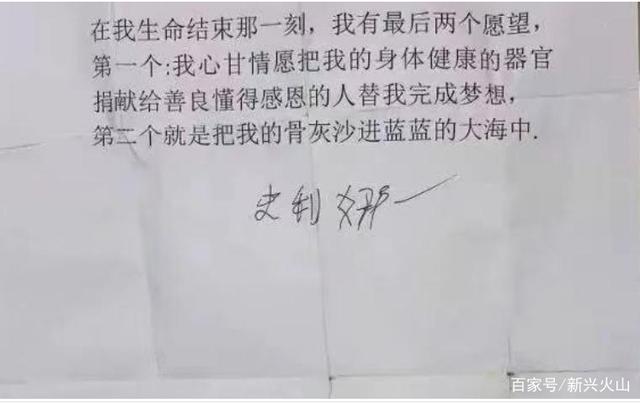 在我生命结束那一刻，我有最后两个愿望，
第一个:我心甘情愿把我的身体健康的器官
捐献给善良懂得感恩的人替我完成梦想，
第二个就是把我的骨灰沙进蓝蓝的大海中.
史利娜
百家号/新兴火山